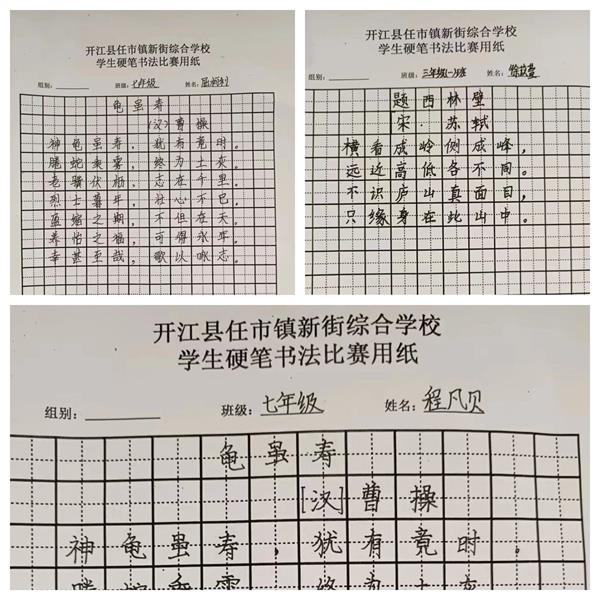 开江县任市镇新街综合学校
学生硬笔书法比赛用纸
组别: 班级: 七年级 姓名:
龟虽寿
(汉)曹操
神龟虽寿，犹有竟时。
腾蛇乘雾，终为土灰。
老骥伏枥，志在千里。
烈士暮年，壮心不已。
盈缩之期，不但在天。
养怡之福，可得永年。
幸甚至哉，歌以咏志。
开江县任市镇新街综合学校
学生硬笔书法比赛用纸
组别: 班级: 三年级一班 姓名:
题西林壁
宋·苏轼
横看成岭侧成峰，
远近高低各不同。
不识庐山真面目，
只缘身在此山中。
开江县任市镇新街综合学校
学生硬笔书法比赛用纸
组别: 班级: 七年级 姓名: 程凡贝
龟虽寿
[汉]曹操
神龟虽寿，犹有竟时。
腾蛇乘雾 终为土灰